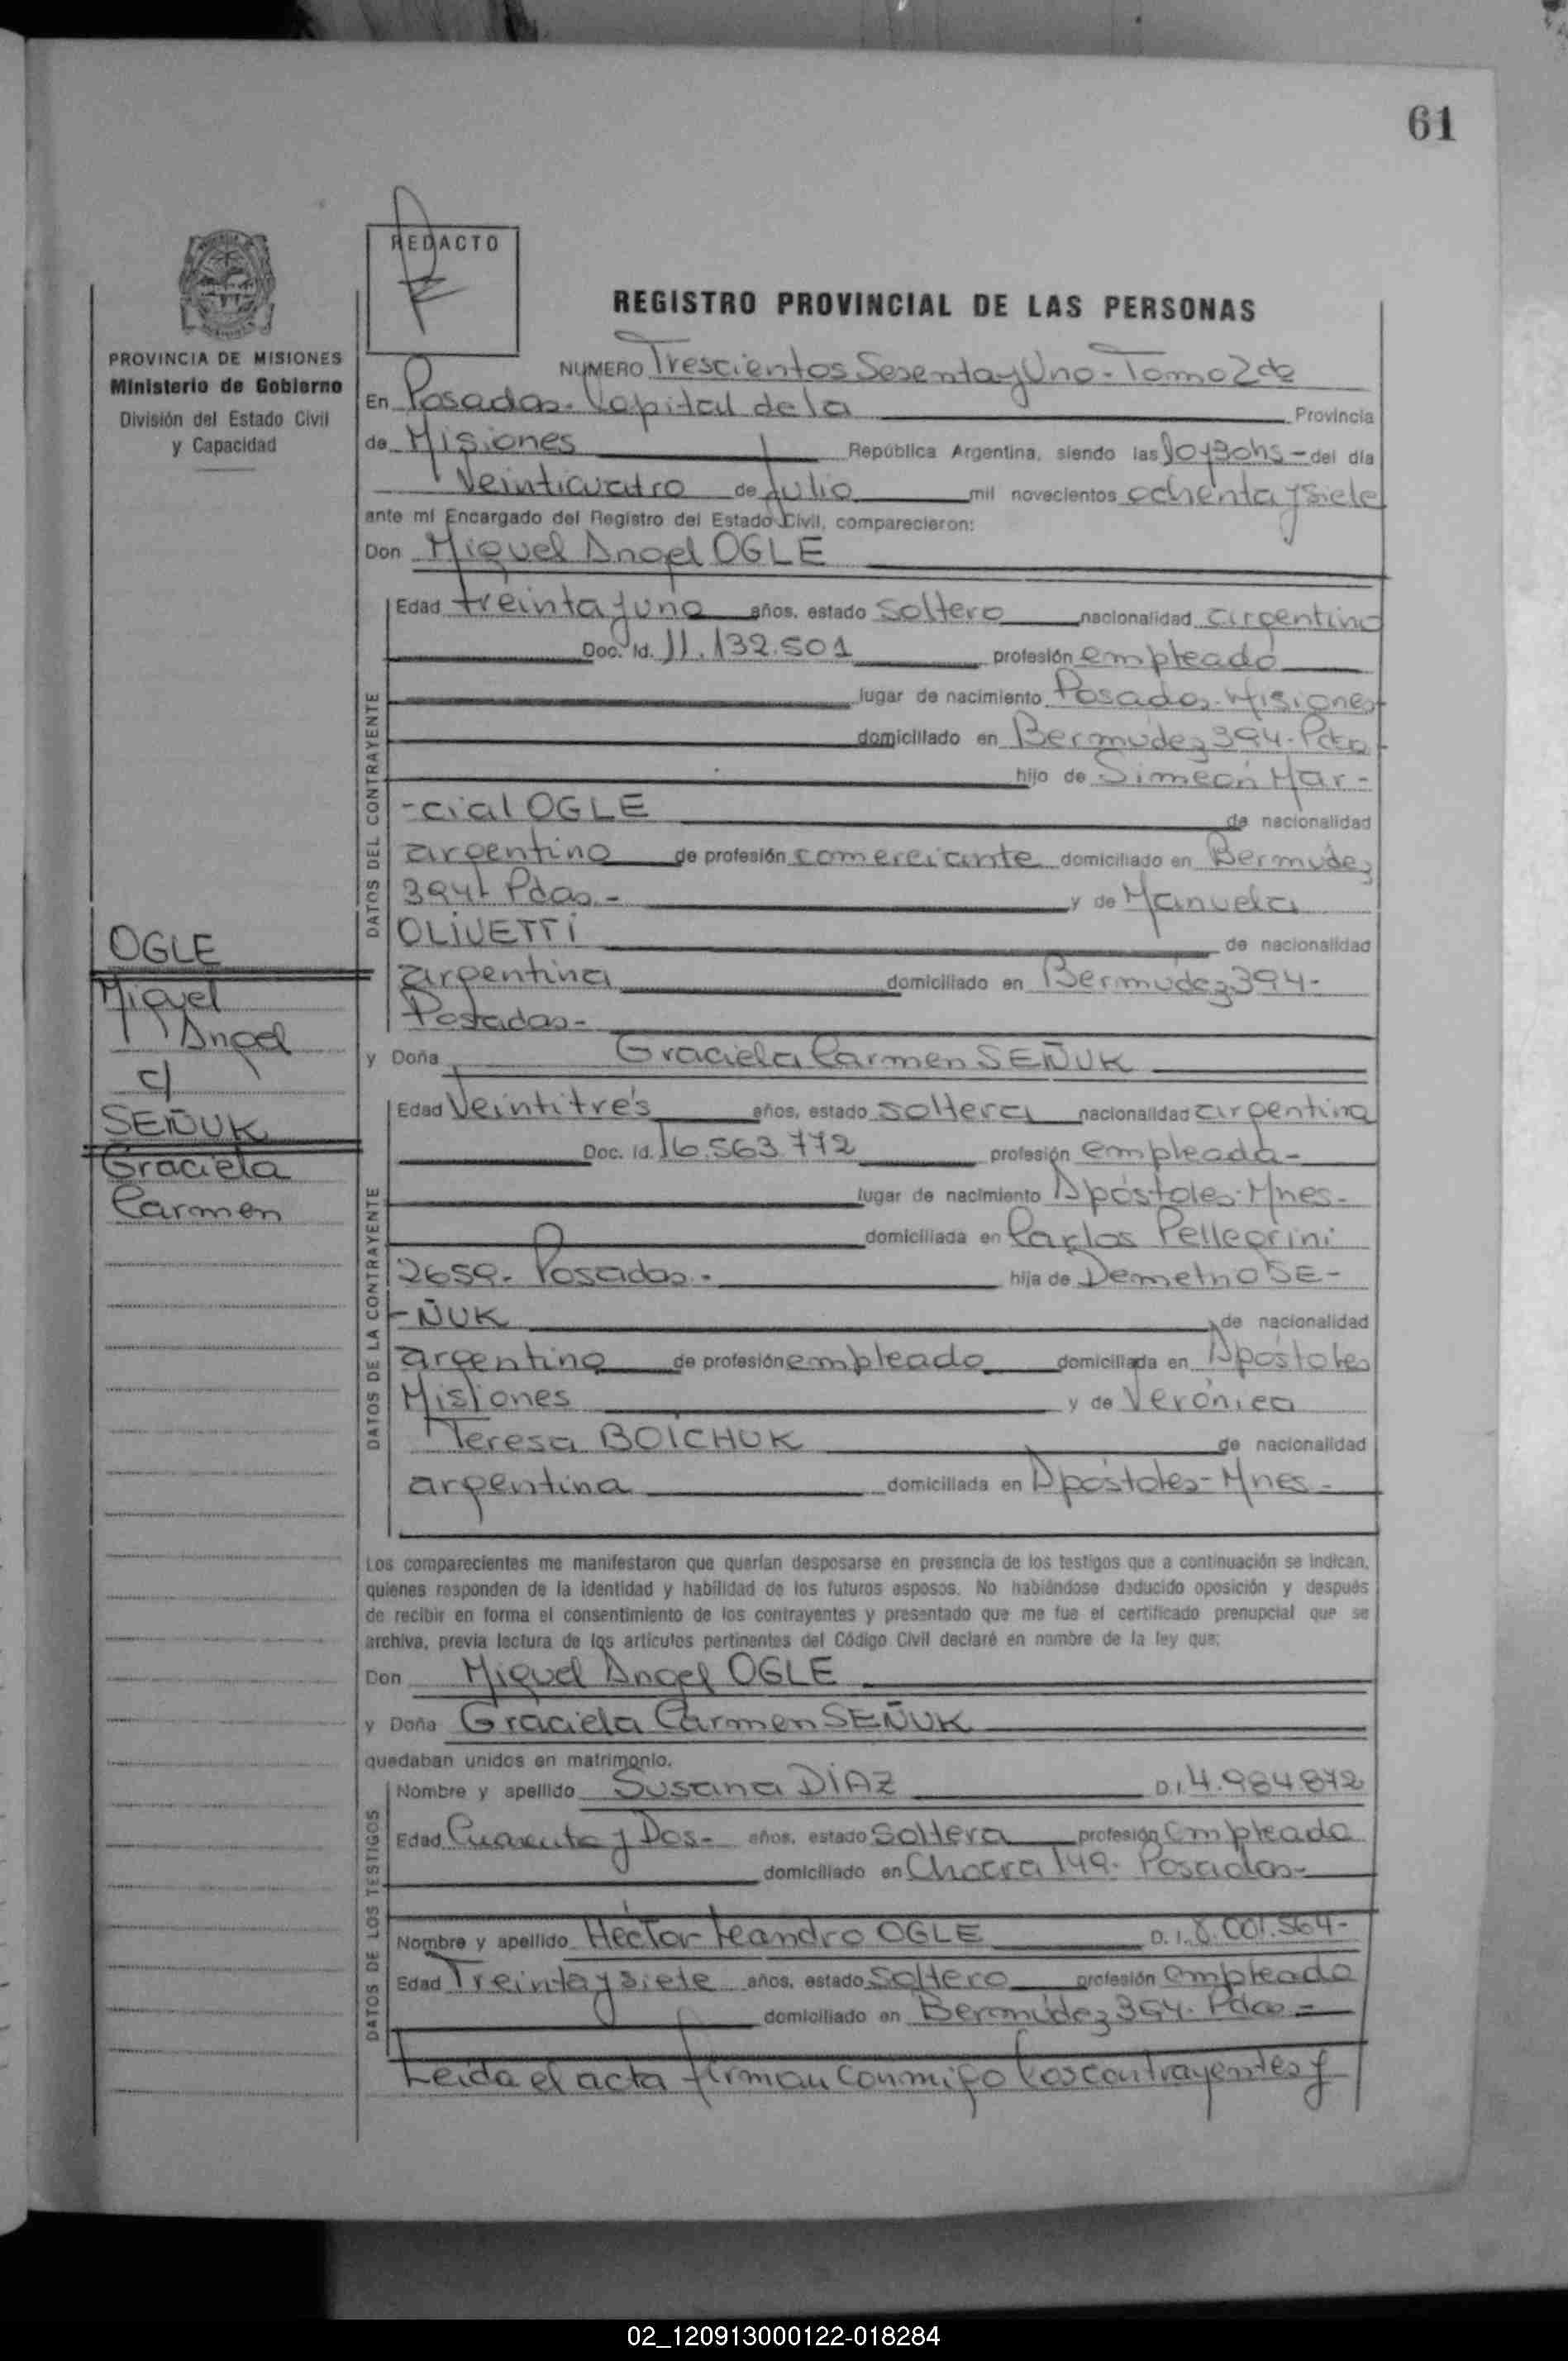 61
REDACTO
PROVINCIA DE MISIONES
Ministerio de Gobierno
División del Estado Civil
y Capacidad
OGLE
Miguel
Angel
c/
SEÑUK
Graciela
Carmen
REGISTRO PROVINCIAL DE LAS PERSONAS
NUMERO Trescientos Sesenta y Uno - Tomo 2do
En Posadas. Capital de la Provincia
de Misiones República Argentina, siendo las 10 y 30 hs - del día
Veinticuatro de Julio mil novecientos ochenta y siete
ante mí Encargado del Registro del Estado Civil, comparecieron:
Don Miguel Angel OGLE
DATOS DEL CONTRAYENTE
Edad treinta y uno años, estado soltero nacionalidad argentino
Doc. Id. 11.132.501 profesión empleado
lugar de nacimiento Posadas. Misiones
domiciliado en Bermúdez 394. Pdas
hijo de Simeón Mar-
-cial OGLE de nacionalidad
argentino de profesión comerciante domiciliado en Bermúdez
394 Pdas - y de Manuela
OLIVETTI de nacionalidad
argentina domiciliado en Bermúdez 394-
Posadas-
y Doña Graciela Carmen SEÑUK
DATOS DE LA CONTRAYENTE
Edad Veintitrés años, estado soltera nacionalidad argentina
Doc. Id. 16.563.772 profesión empleada-
lugar de nacimiento Apóstoles. Mnes-
domiciliada en Carlos Pellegrini
2659. Posadas. - hija de Demetrio SE-
-ÑUK de nacionalidad
argentino de profesión empleado domiciliada en Apóstoles
Misiones y de Verónica
Teresa BOICHUK de nacionalidad
argentina domiciliada en Apóstoles - Mnes -
Los comparecientes me manifestaron que querían desposarse en presencia de los testigos que a continuación se indican,
quienes responden de la identidad y habilidad de los futuros esposos. No habiéndose deducido oposición y después
de recibir en forma el consentimiento de los contrayentes y presentado que me fue el certificado prenupcial que se
archiva, previa lectura de los artículos pertinentes del Código Civil declaré en nombre de la ley que:
Don Miguel Angel OGLE
y Doña Graciela Carmen SEÑUK
quedaban unidos en matrimonio.
DATOS DE LOS TESTIGOS
Nombre y apellido Susana DÍAZ D.I. 4.984.872
Edad Cuarenta y Dos- años, estado soltera profesión empleada
domiciliado en Chacra 149. Posadas-
Nombre y apellido Héctor Leandro OGLE D.I. 8.001.564-
Edad Treinta y siete años, estado soltero profesión empleado
domiciliado en Bermúdez 394. Pdas -
Leída el acta firman conmigo los contrayentes y
02_120913000122-018284